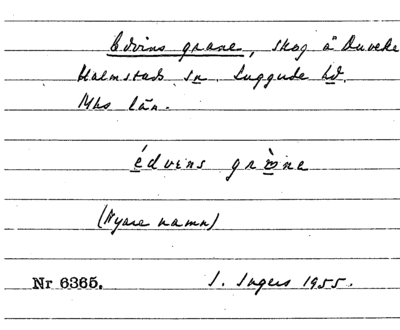 Edvins grane, skog å Duveke
Halmstads sn. Luggude hd.
Mhs län.
édvens gròne
(Nyare namn)
Nr 6365. I. Ingers 1955.